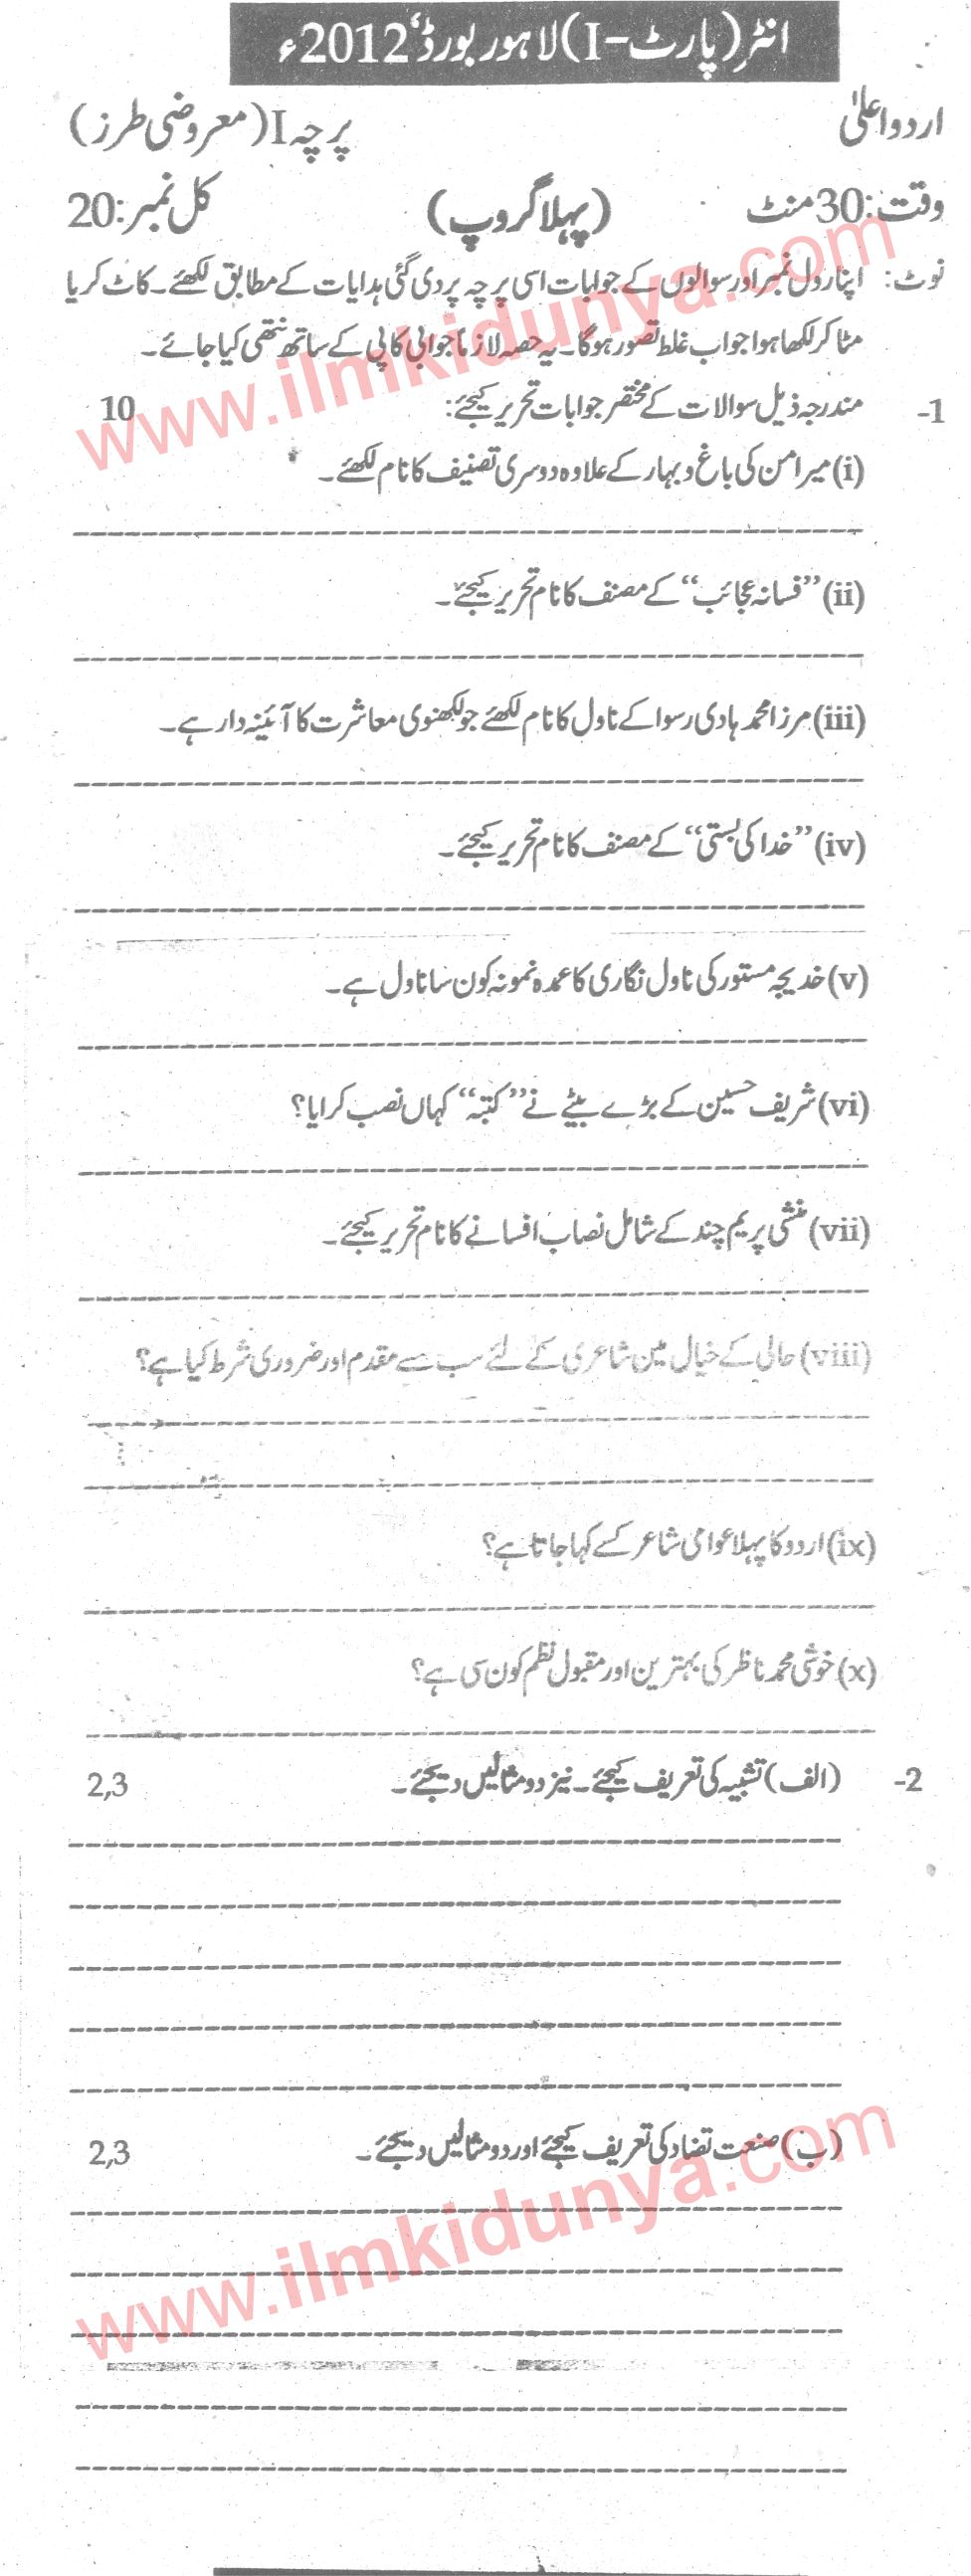 انٹر (پارٹ-I) لاہور بورڈ، 2012ء
اردو اعلیٰ پرچہ I (معروضی طرز)
وقت: 30 منٹ (پہلا گروپ) کل نمبر: 20
نوٹ: اپنا رول نمبر اور سوالوں کے جوابات اسی پرچہ پر دی گئی ہدایات کے مطابق لکھئے۔ کاٹ کر یا
مٹا کر لکھا ہوا جواب غلط تصور ہوگا۔ یہ حصہ لازماً جوابی کاپی کے ساتھ نتھی کیا جائے۔
1- مندرجہ ذیل سوالات کے مختصر جوابات تحریر کیجئے: 10
(i) میر امن کی باغ و بہار کے علاوہ دوسری تصنیف کا نام لکھئے۔
(ii) ”فسانہ عجائب“ کے مصنف کا نام تحریر کیجئے۔
(iii) مرزا محمد ہادی رسوا کے ناول کا نام لکھئے جو لکھنوی معاشرت کا آئینہ دار ہے۔
(iv) ”خدا کی بستی“ کے مصنف کا نام تحریر کیجئے۔
(v) خدیجہ مستور کی ناول نگاری کا عمدہ نمونہ کون سا ناول ہے۔
(vi) شریف حسین کے بڑے بیٹے نے ”کتبہ“ کہاں نصب کرایا؟
(vii) منشی پریم چند کے شامل نصاب افسانے کا نام تحریر کیجئے۔
(viii) حالی کے خیال میں شاعری کے لئے سب سے مقدم اور ضروری شرط کیا ہے؟
(ix) اردو کا پہلا عوامی شاعر کسے کہا جاتا ہے؟
(x) خوشی محمد ناظر کی بہترین اور مقبول نظم کون سی ہے؟
2- (الف) تشبیہ کی تعریف کیجئے۔ نیز دو مثالیں دیجئے۔ 2,3
(ب) صنعت تضاد کی تعریف کیجئے اور دو مثالیں دیجئے۔ 2,3
www.ilmkidunya.com
www.ilmkidunya.com